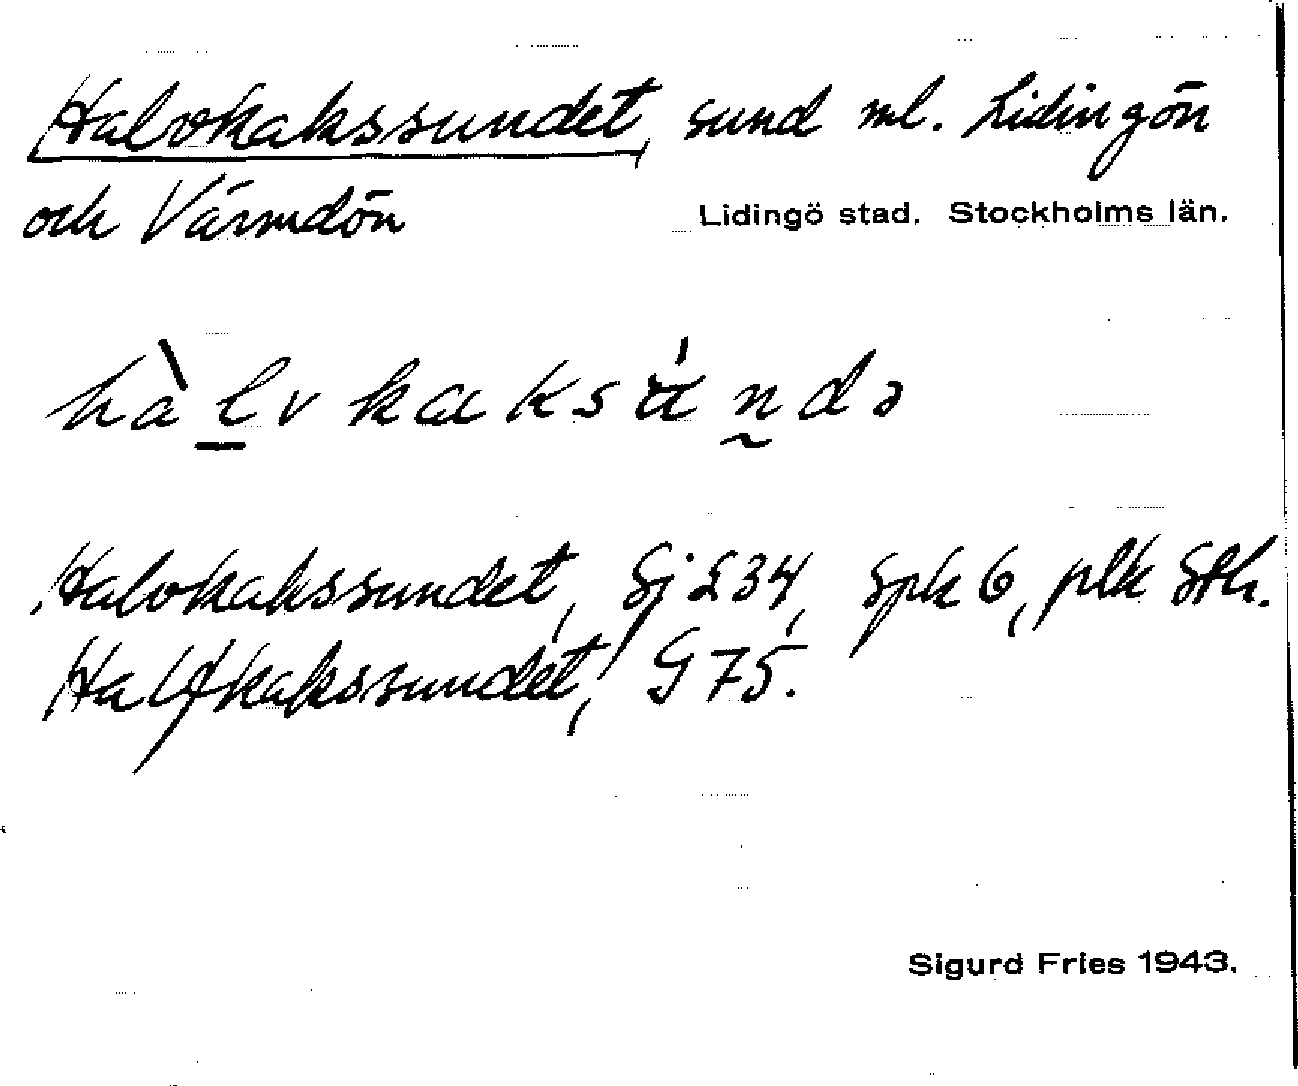 Halvkakssundet, sund ml. Lidingön
och Värmdön
Lidingö stad. Stockholms län.
hàlvkaksándə
Halvkakssundet, Sj 234, Spk 6, plk Sth.
Halfkakssundet, G 75.
Sigurd Fries 1943.